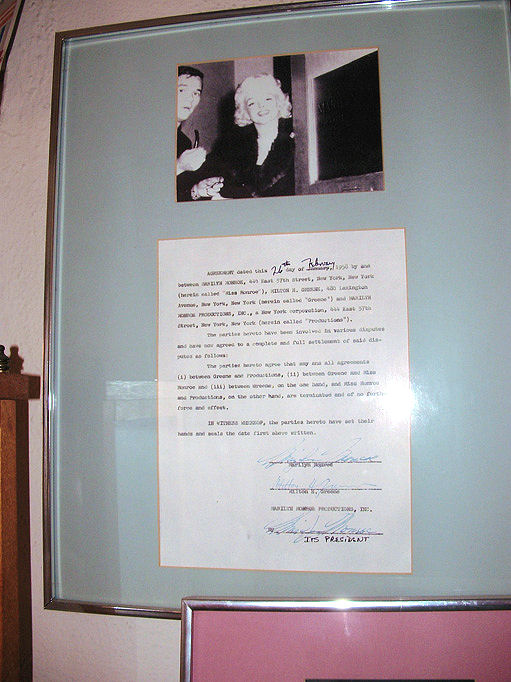 AGREEMENT dated this 26th day of January, February 1958 by and
between MARILYN MONROE, 444 East 57th Street, New York, New York
(herein called "Miss Monroe"), MILTON H. GREENE, 480 Lexington
Avenue, New York, New York (herein called "Greene") and MARILYN
MONROE PRODUCTIONS, INC., a New York corporation, 444 East 57th
Street, New York, New York (herein called "Productions").
The parties hereto have been involved in various disputes
and have now agreed to a complete and full settlement of said dis-
putes as follows:
The parties hereto agree that any and all agreements
(i) between Greene and Productions, (ii) between Greene and Miss
Monroe and (iii) between Greene, on the one hand, and Miss Monroe
and Productions, on the other hand, are terminated and of no further
force and effect.
IN WITNESS WHEREOF, the parties hereto have set their
hands and seals the date first above written.
Marilyn Monroe
Marilyn Monroe
Milton H. Greene
Milton H. Greene
MARILYN MONROE PRODUCTIONS, INC.
By Marilyn Monroe
ITS PRESIDENT